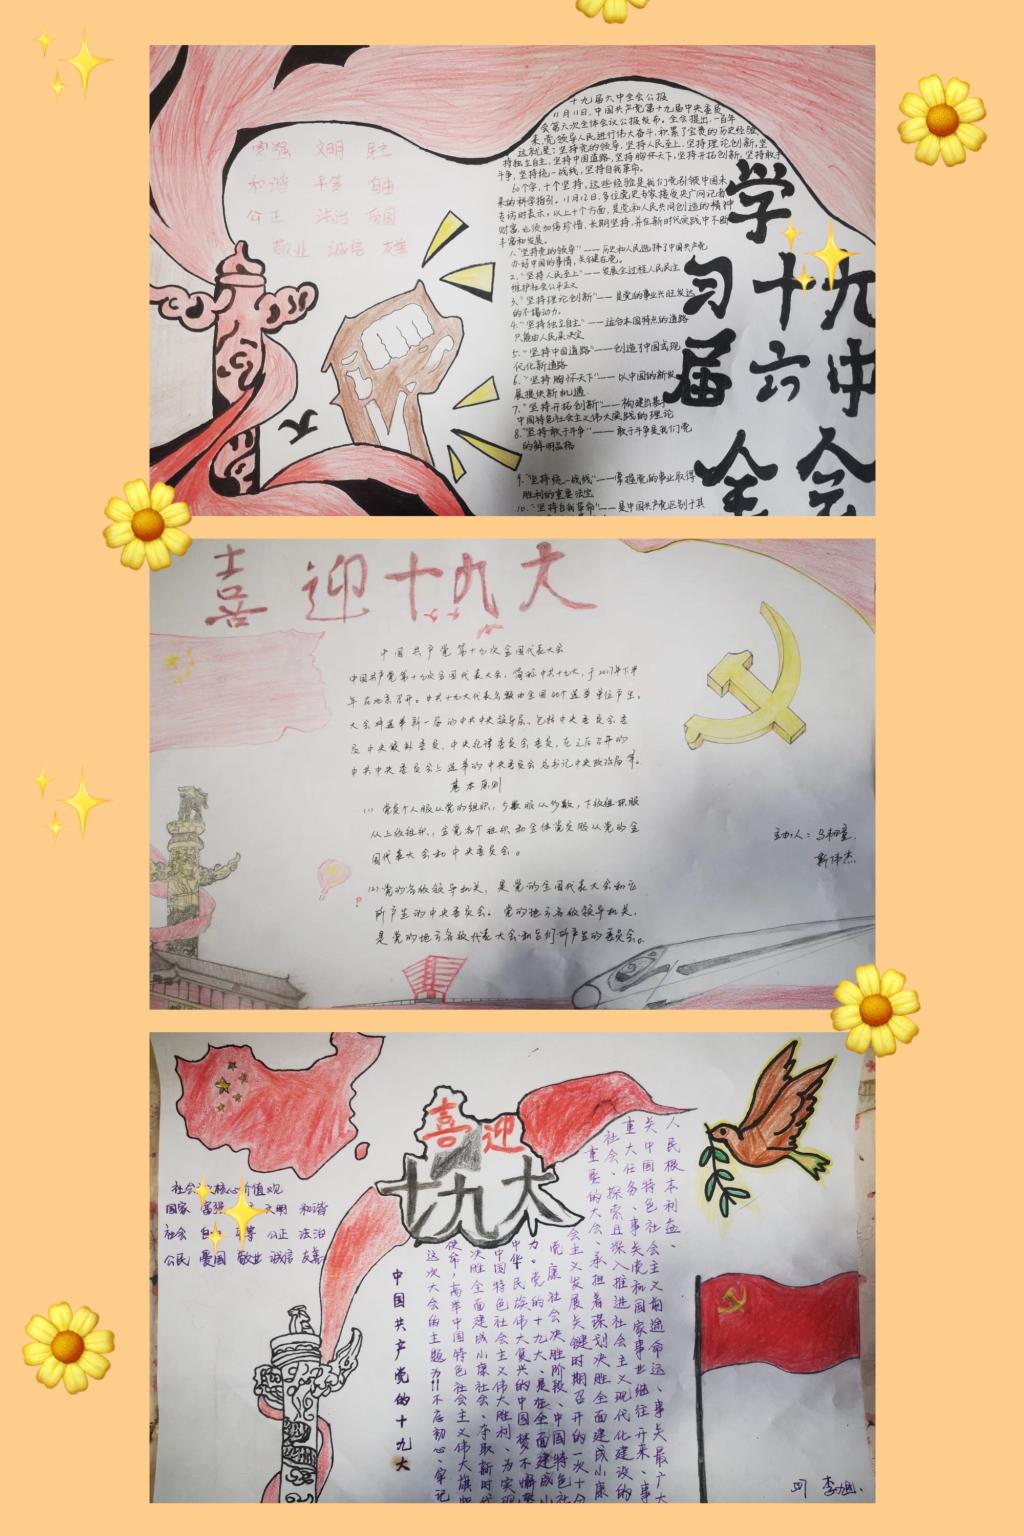 富强 文明 民主
和谐 平等 自由
公正 法治 爱国
敬业 诚信 友善
十九届六中全会公报
11月11日,中国共产党第十九届中央委员
会第六次全体会议公报发布。全会提出,一百年
来,党领导人民进行伟大奋斗,积累了宝贵的历史经验,
这就是:坚持党的领导,坚持人民至上,坚持理论创新,坚
持独立自主,坚持中国道路,坚持胸怀天下,坚持开拓创新,坚持敢于
斗争,坚持统一战线,坚持自我革命。
60个字,十个坚持,这些经验是我们党引领中国未
来的科学指引。11月12日,多位党史专家接受央广网记者
专访时表示。以上十个方面,是党和人民共同创造的精神
财富,必须加倍珍惜、长期坚持,并在新时代实践中不断
丰富和发展。
1."坚持党的领导"——历史和人民选择了中国共产党
办好中国的事情,关键在党。
2."坚持人民至上"——发展全过程人民民主
维护社会公平正义
3."坚持理论创新"——是党的事业兴旺发达
的不竭动力。
4."坚持独立自主"——适合本国特点的道路
只能由人民来决定
5."坚持中国道路"——创造了中国式现
代化新道路
6."坚持胸怀天下"——以中国的新发
展提供新机遇
7."坚持开拓创新"——构建出基于
中国特色社会主义伟大实践的理论
8."坚持敢于斗争"——敢于斗争是我们党
的鲜明品格
9."坚持统一战线"——掌握党的事业取得
胜利的重要法宝
10."坚持自我革命"——是中国共产党区别于其
学
习十九
届六中
全会
喜迎十九大
中国共产党第十九次全国代表大会
中国共产党第十九次全国代表大会,简称中共十九大,于2017年下半
年在北京召开。中共十九大代表名额由全国40个选举单位产生。
大会将选举新一届的中共中央领导层,包括中央委员会委
员中央候补委员、中央纪律委员会委员,在之后召开的
中共中央委员会上选举的中央委员会总书记中央政治局等。
基本原则
(1) 党员个人服从党的组织,少数服从多数,下级组织服
从上级组织,全党各个组织和全体党员服从党的全
国代表大会和中央委员会。
(2)党的各级领导机关,是党的全国代表大会和它
所产生的中央委员会。党的地方各级领导机关,
是党的地方各级代表大会和它们所产生的委员会。
主办人:
靳伟杰
喜迎
十九大
核心价值观
国家 富强 文明 和谐
社会 自 等 公正 法治
公民 爱国 敬业 诚信 友善
人民根本利益、
关中国特色社会主义前途命运、事关最广大
重大任务、事关党和国家事业继往开来、事
社会、探索且深入推进社会主义现代化建设的
重要的大会、承担着谋划决胜全面建成小康
会主义发展关键时期召开的一次十分
党康社会决胜阶段、中国特色社
力。党的十九大、是在全面建成小
中华民族伟大复兴的中国梦不懈
中国特色社会主义伟大胜利、为实现
决胜全面建成小康社会、夺取新时代
使命,高举中国特色社会主义伟大旗帜
这次大会的主题为!!不忘初心、牢记
中国共产党的十九大